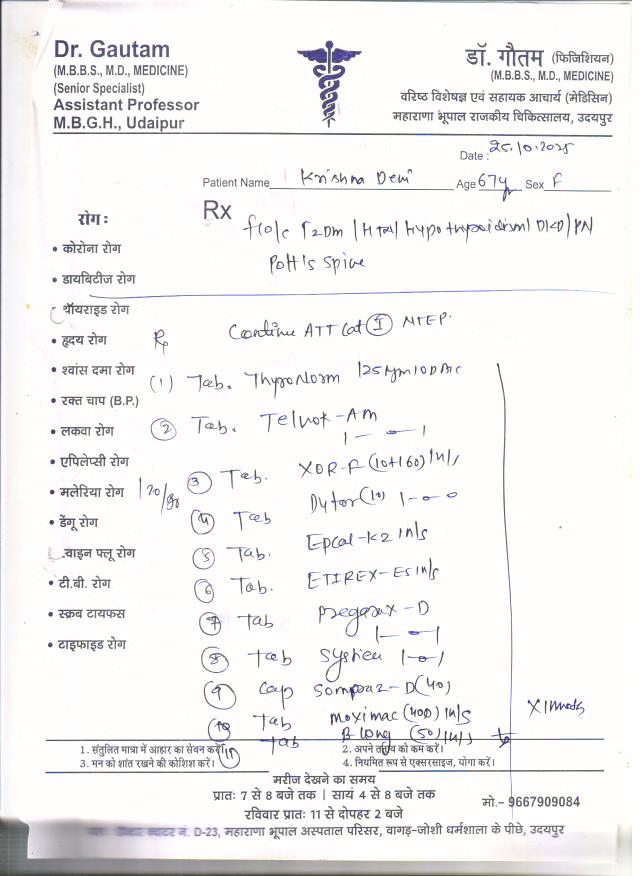 Dr. Gautam
(M.B.B.S., M.D., MEDICINE)
(Senior Specialist)
Assistant Professor
M.B.G.H., Udaipur
डॉ. गौतम (फिजिशियन)
(M.B.B.S., M.D., MEDICINE)
वरिष्ठ विशेषज्ञ एवं सहायक आचार्य (मेडिसिन)
महाराणा भूपाल राजकीय चिकित्सालय, उदयपुर
Date : 25.10.2025
Patient Name Krishna Devi Age 67y Sex F
Rx
f/o/c T2Dm / HTN / Hypothyroidism / DKD / PN
Pott's Spine
रोग :
• कोरोना रोग
• डायबिटीज रोग
थॉयराइड रोग
• हृदय रोग
• श्वांस दमा रोग
• रक्त चाप (B.P.)
• लकवा रोग
• एपिलेप्सी रोग
• मलेरिया रोग
• डेंगू रोग
वाइन फ्लू रोग
• टी.बी. रोग
• स्क्रब टायफस
• टाइफाइड रोग
120/80
Continue ATT Cat I NTEP.
Rx
(1) Tab. Thyronorm 125 1OD
(2) Tab. Telnot-AM
1-0-1
(3) Tab. XOR-F (10+160)
(4) Tab Dytor (10) 1-0-0
(5) Tab. Epcal-K2
(6) Tab. ETIREX-ES
(7) Tab -D
1-0-1
(8) Tab 1-0-1
(9) Cap Sompraz-D (40)
(10) Tab Moximac (400)
(11) Tab B long (50)
1. संतुलित मात्रा में आहार का सेवन करें।
2. अपने तनाव को कम करें।
3. मन को शांत रखने की कोशिश करें।
4. नियमित रूप से एक्सरसाइज, योगा करें।
मरीज देखने का समय
प्रातः 7 से 8 बजे तक | सायं 4 से 8 बजे तक
रविवार प्रातः 11 से दोपहर 2 बजे
मो.- 9667909084
नं. D-23, महाराणा भूपाल अस्पताल परिसर, वागड़-जोशी धर्मशाला के पीछे, उदयपुर